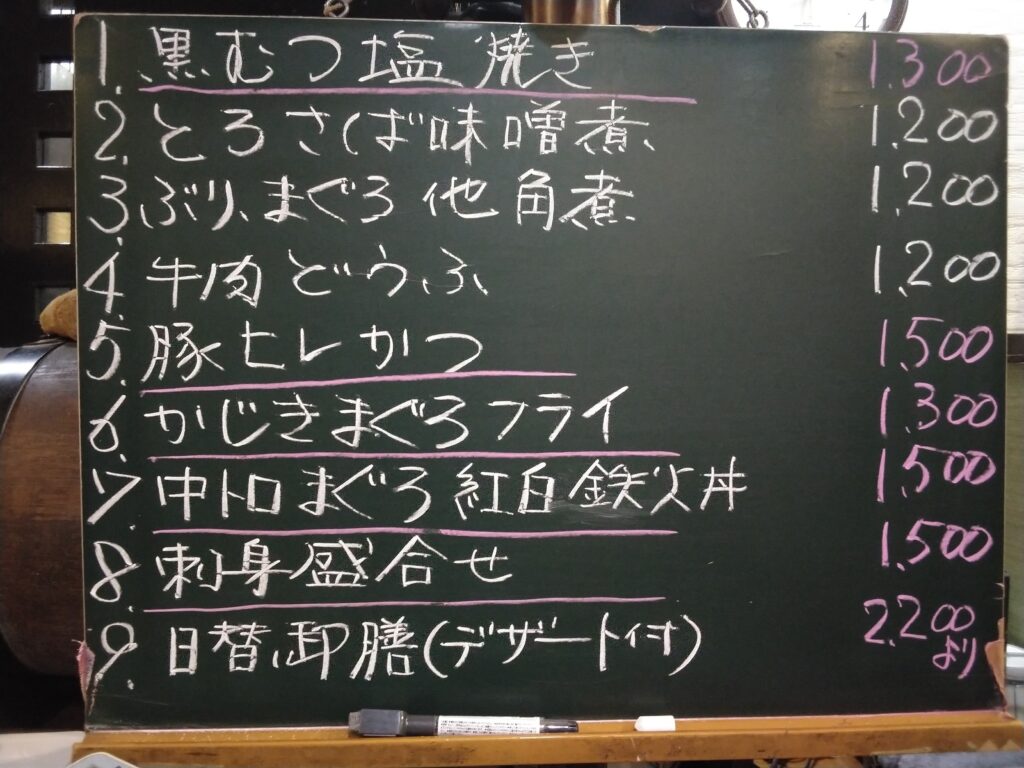 1. 黒むつ塩焼き 1.300
2. とろさば味噌煮 1.200
3. ぶり、まぐろ他角煮 1.200
4. 牛肉どうふ 1.200
5. 豚ヒレかつ 1.500
6. かじきまぐろフライ 1.300
7. 中トロまぐろ紅白鉄火丼 1.500
8. 刺身盛合せ 1.500
9. 日替御膳(デザート付) 2.200
より